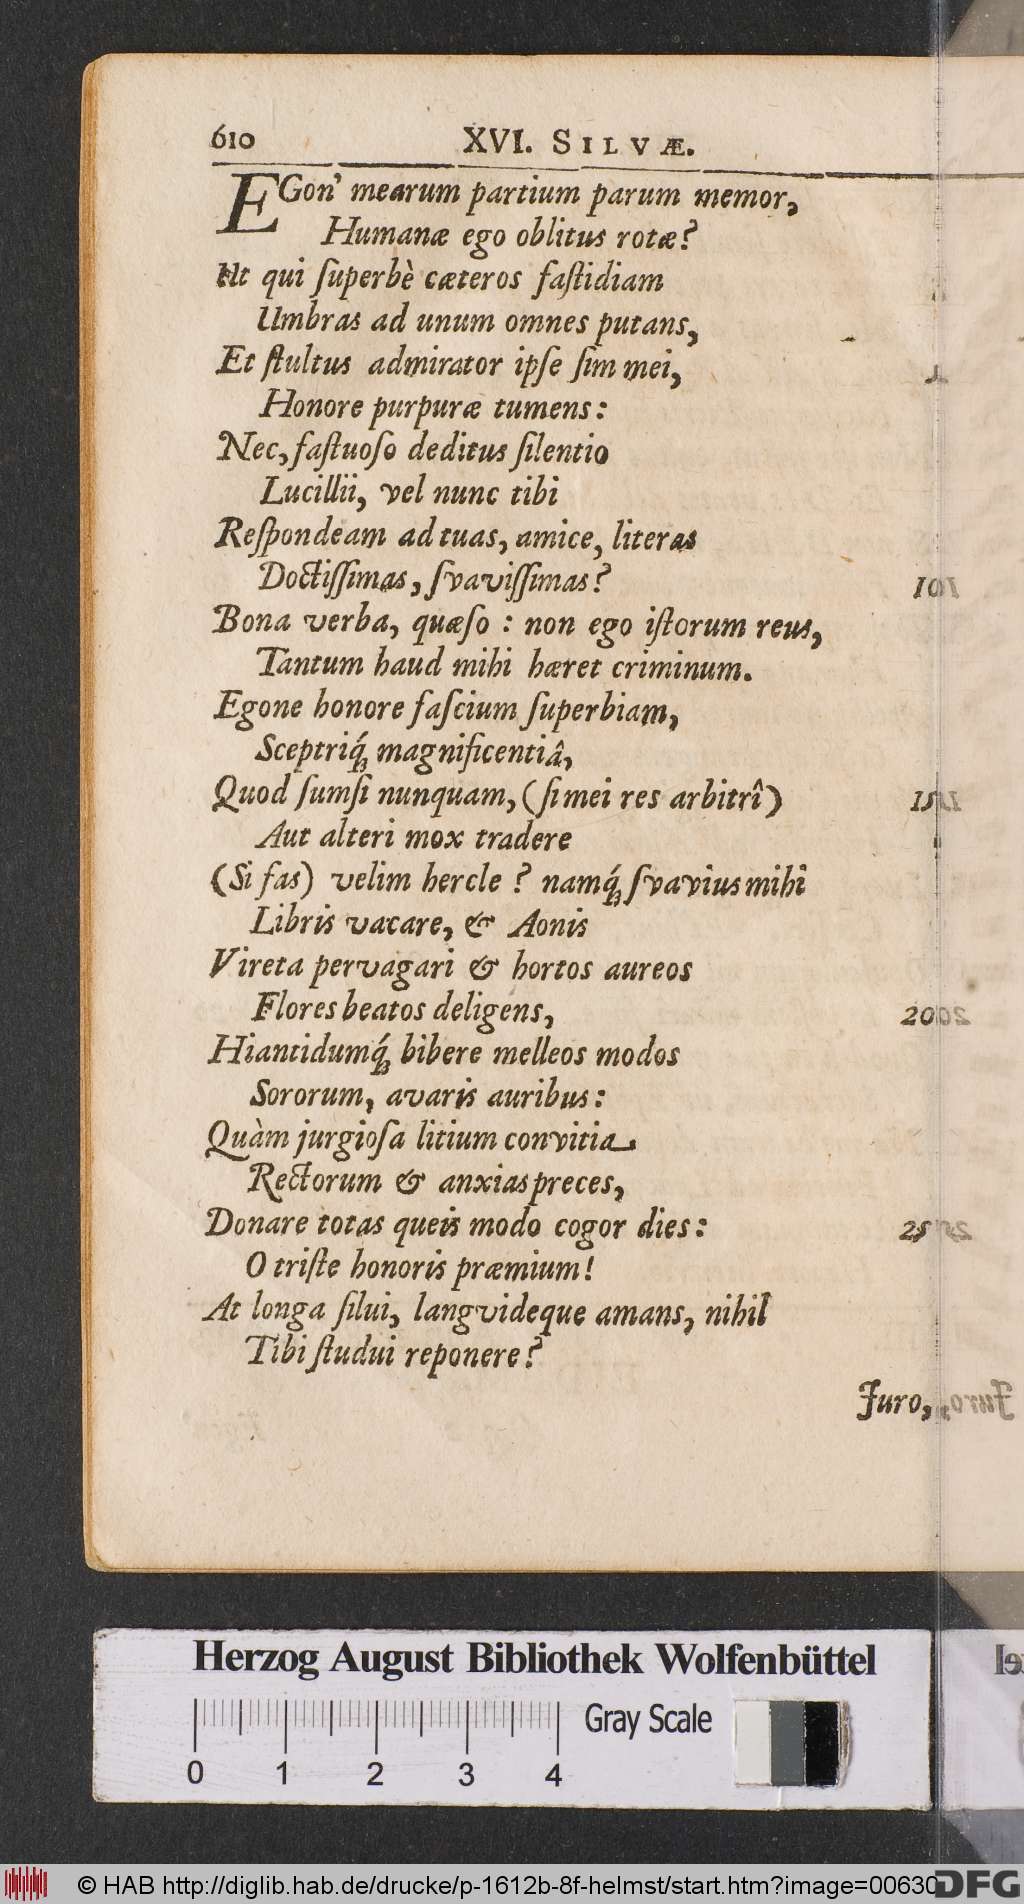 610 XVI. SILVÆ.
EGon' mearum partium parum memor,
Humanæ ego oblitus rotæ?
Ut qui ſuperbè cæteros faſtidiam
Umbras ad unum omnes putans,
Et ſtultus admirator ipſe ſim mei,
Honore purpuræ tumens:
Nec, faſtuoſo deditus ſilentio
Lucillii, vel nunc tibi
Reſpondeam ad tuas, amice, literas
Doctiſſimas, ſvaviſſimas?
10
Bona verba, quæſo : non ego iſtorum reus,
Tantum haud mihi hæret criminum.
Egone honore faſcium ſuperbiam,
Sceptriq́; magnificentiâ,
Quod ſumſi nunquam, (ſi mei res arbitrî)
15
Aut alteri mox tradere
(Si fas) velim hercle ? namq́; ſvavius mihi
Libris vacare, & Aonis
Vireta pervagari & hortos aureos
Flores beatos deligens,
20
Hiantidumq́; bibere melleos modos
Sororum, avaris auribus:
Quàm jurgioſa litium convitia
Rectorum & anxias preces,
Donare totas queis modo cogor dies:
25
O triſte honoris præmium!
At longa ſilui, langvideque amans, nihil
Tibi ſtudui reponere?
Juro,
Herzog August Bibliothek Wolfenbüttel
Gray Scale
0 1 2 3 4
© HAB http://diglib.hab.de/drucke/p-1612b-8f-helmst/start.htm?image=00630
DFG